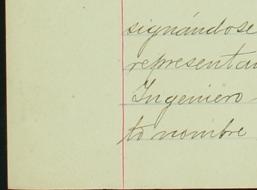 signándose
representan
Ingeniero
to nombre